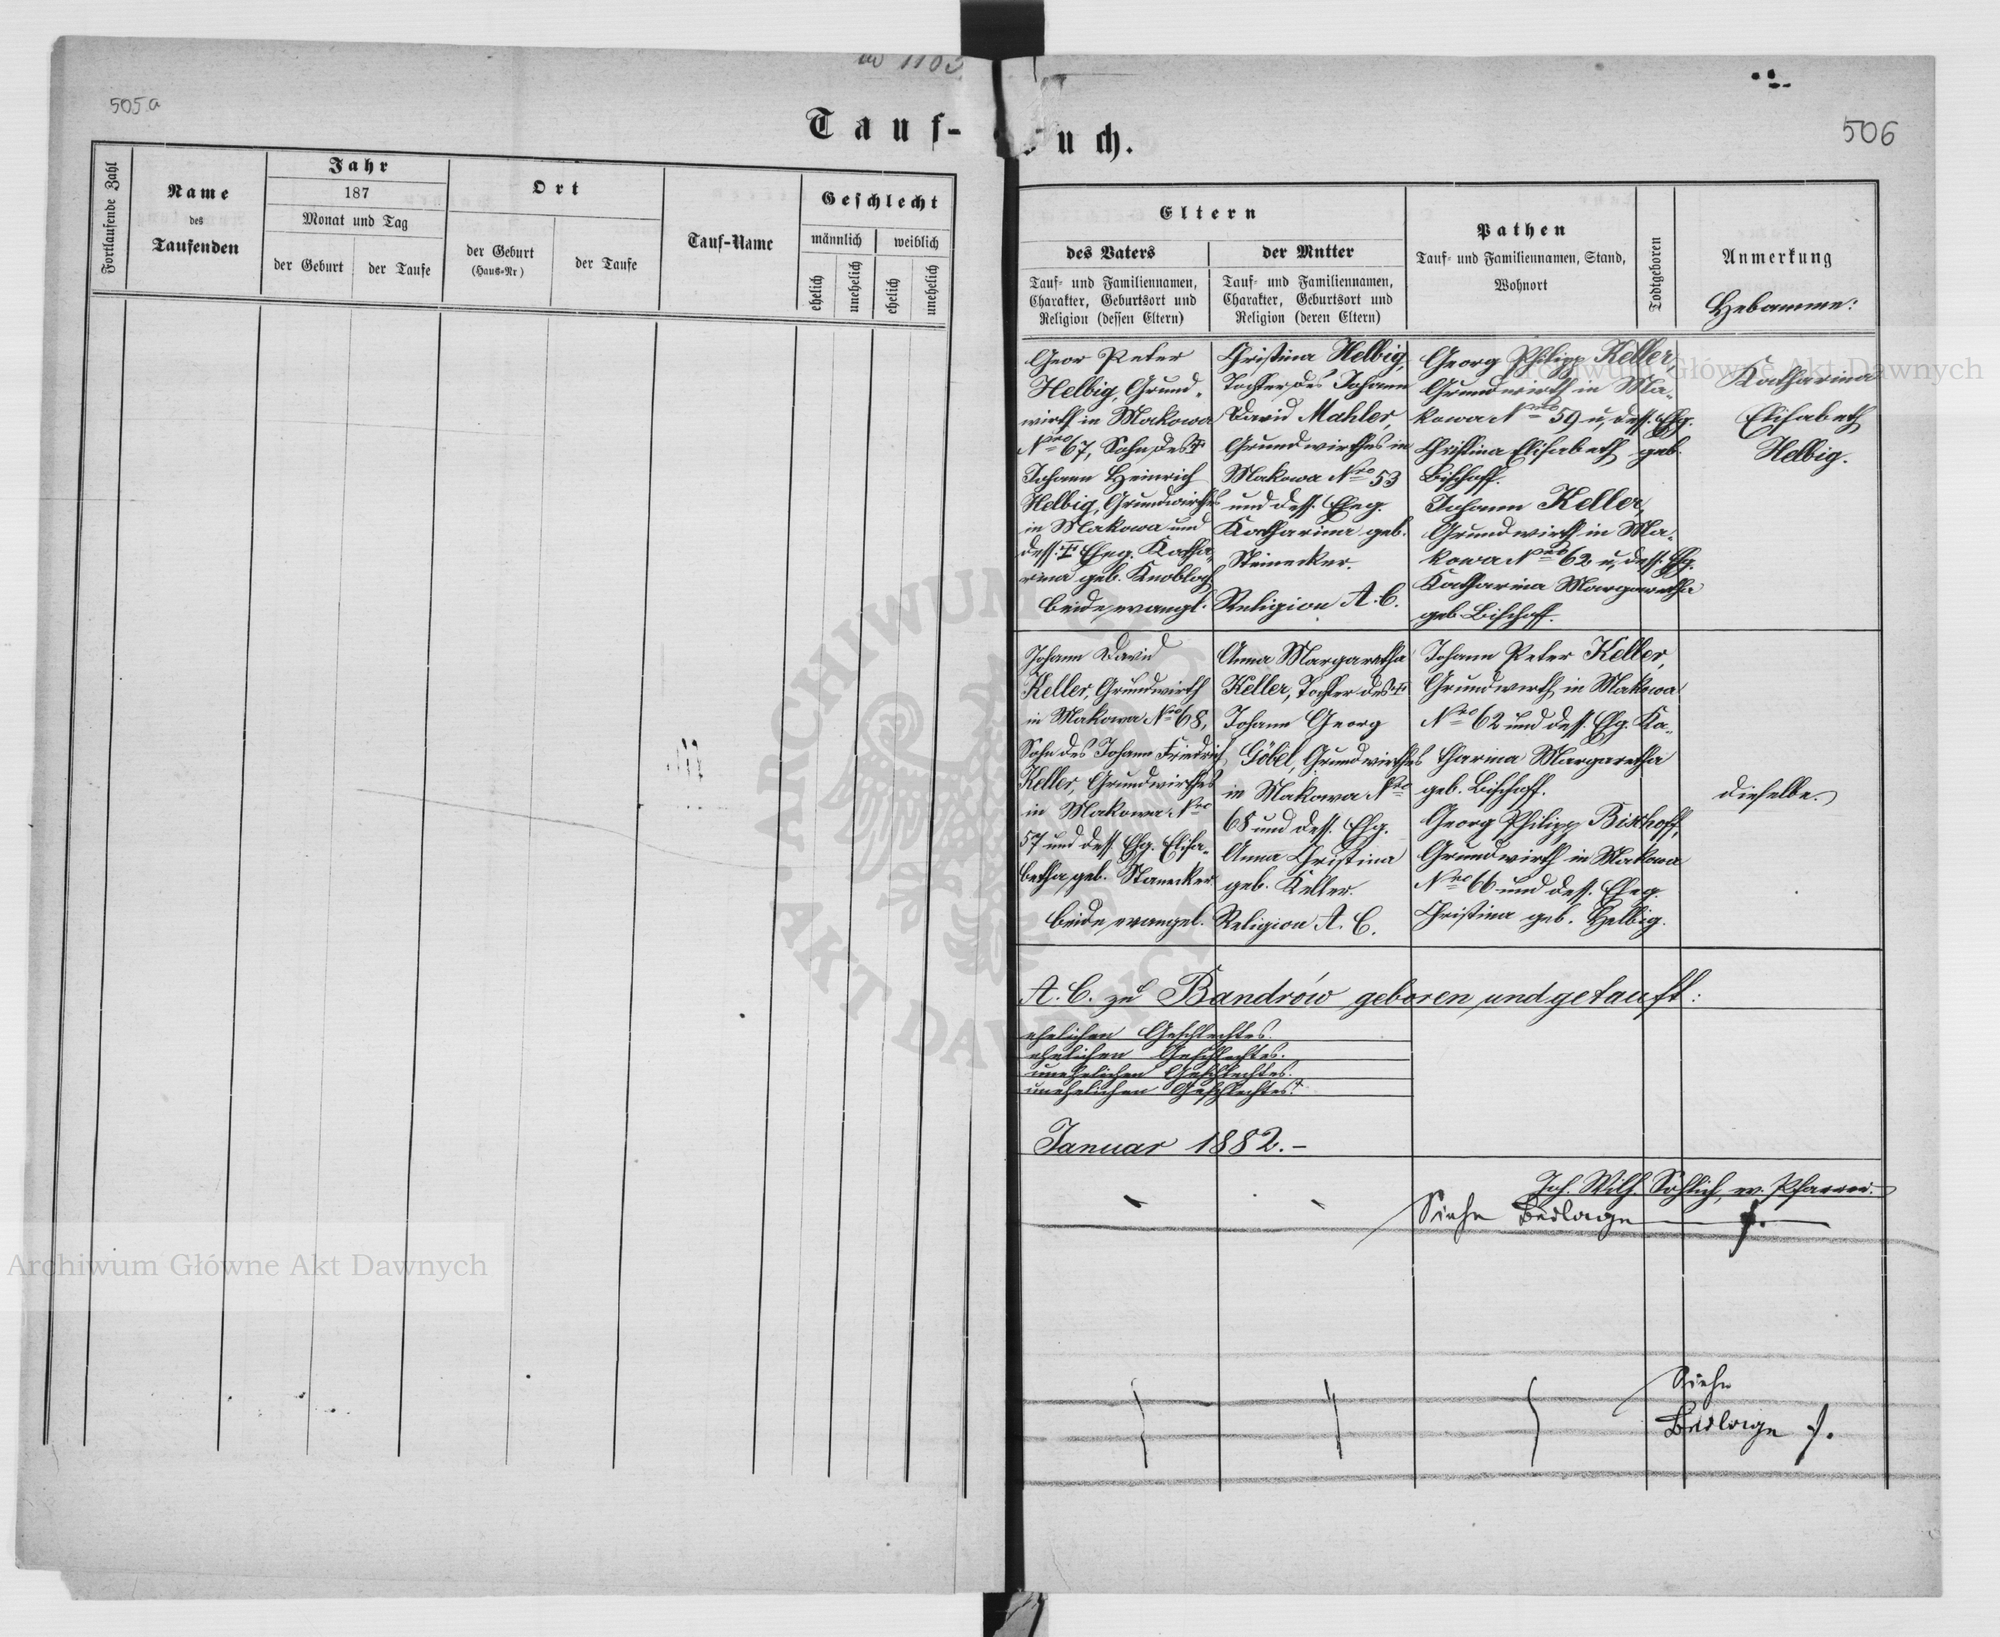 505a
506
Tauf-
uch.
Fortlaufende Zahl
Name
des
Taufenden
Jahr
187
Monat und Tag
der Geburt
der Taufe
Ort
der Geburt
(Haus-Nr)
der Taufe
Tauf-Name
Geschlecht
männlich
weiblich
ehelich
unehelich
ehelich
unehelich
Eltern
des Vaters
Tauf- und Familiennamen,
Charakter, Geburtsort und
Religion (dessen Eltern)
der Mutter
Tauf- und Familiennamen,
Charakter, Geburtsort und
Religion (deren Eltern)
Pathen
Tauf- und Familiennamen, Stand,
Wohnort
Todtgeboren
Anmerkung
Hebamme:
Geor Peter
Helbig, Grund-
wirth in Makowa
Nro 67, Sohn des †
Johann Heinrich
Helbig, Grundwirthes
in Makowa und
dess. † Eheg. Katha-
rina geb. Knobloch
beide evangl.
Christina Helbig,
Tochter des Johann
David Mahler,
Grundwirthes in
Makowa Nro 53
und dess. Eheg.
Katharina geb.
Steinecker.
Religion A. C.
Georg Philipp Keller,
Grundwirth in Ma-
kowa Nro 59 u. dess. Ehg.
Christina Elisabeth geb.
Bischoff.
Johann Keller,
Grundwirth in Ma-
kowa Nro 62 u. dess. Ehg.
Katharina Margaretha
geb. Bischoff.
Katharina
Elisabeth
Helbig.
Johann David
Keller, Grundwirth
in Makowa Nro 68,
Sohn des Johann Friedrich
Keller, Grundwirthes
in Makowa Nro
57 und dess. Ehg. Elisa-
betha geb. Stanecker.
beide evangel.
Anna Margaretha
Keller, Tochter des †
Johann Georg
Göbel, Grundwirthes
in Makowa Nro
68 und dess. Ehg.
Anna Christina
geb. Keller.
Religion A. C.
Johann Peter Keller,
Grundwirth in Makowa
Nro 62 und dess. Ehg. Ka-
tharina Margaretha
geb. Bischoff.
Georg Philipp Bischoff,
Grundwirth in Makowa
Nro 66 und dess. Eheg.
Christina geb. Helbig.
dieselbe.
A. C. zu Bandrów geboren und getauft:
ehelichen Geschlechtes.
ehelichen Geschlechtes.
unehelichen Geschlechtes.
unehelichen Geschlechtes.
Januar 1882.-
Joh. Wilh. ev. Pfarrer.
Siehe Beilage
Siehe
Beilage
ARCHIWUM
AKT DAWNYCH
Archiwum Główne Akt Dawnych
Archiwum Główne Akt Dawnych